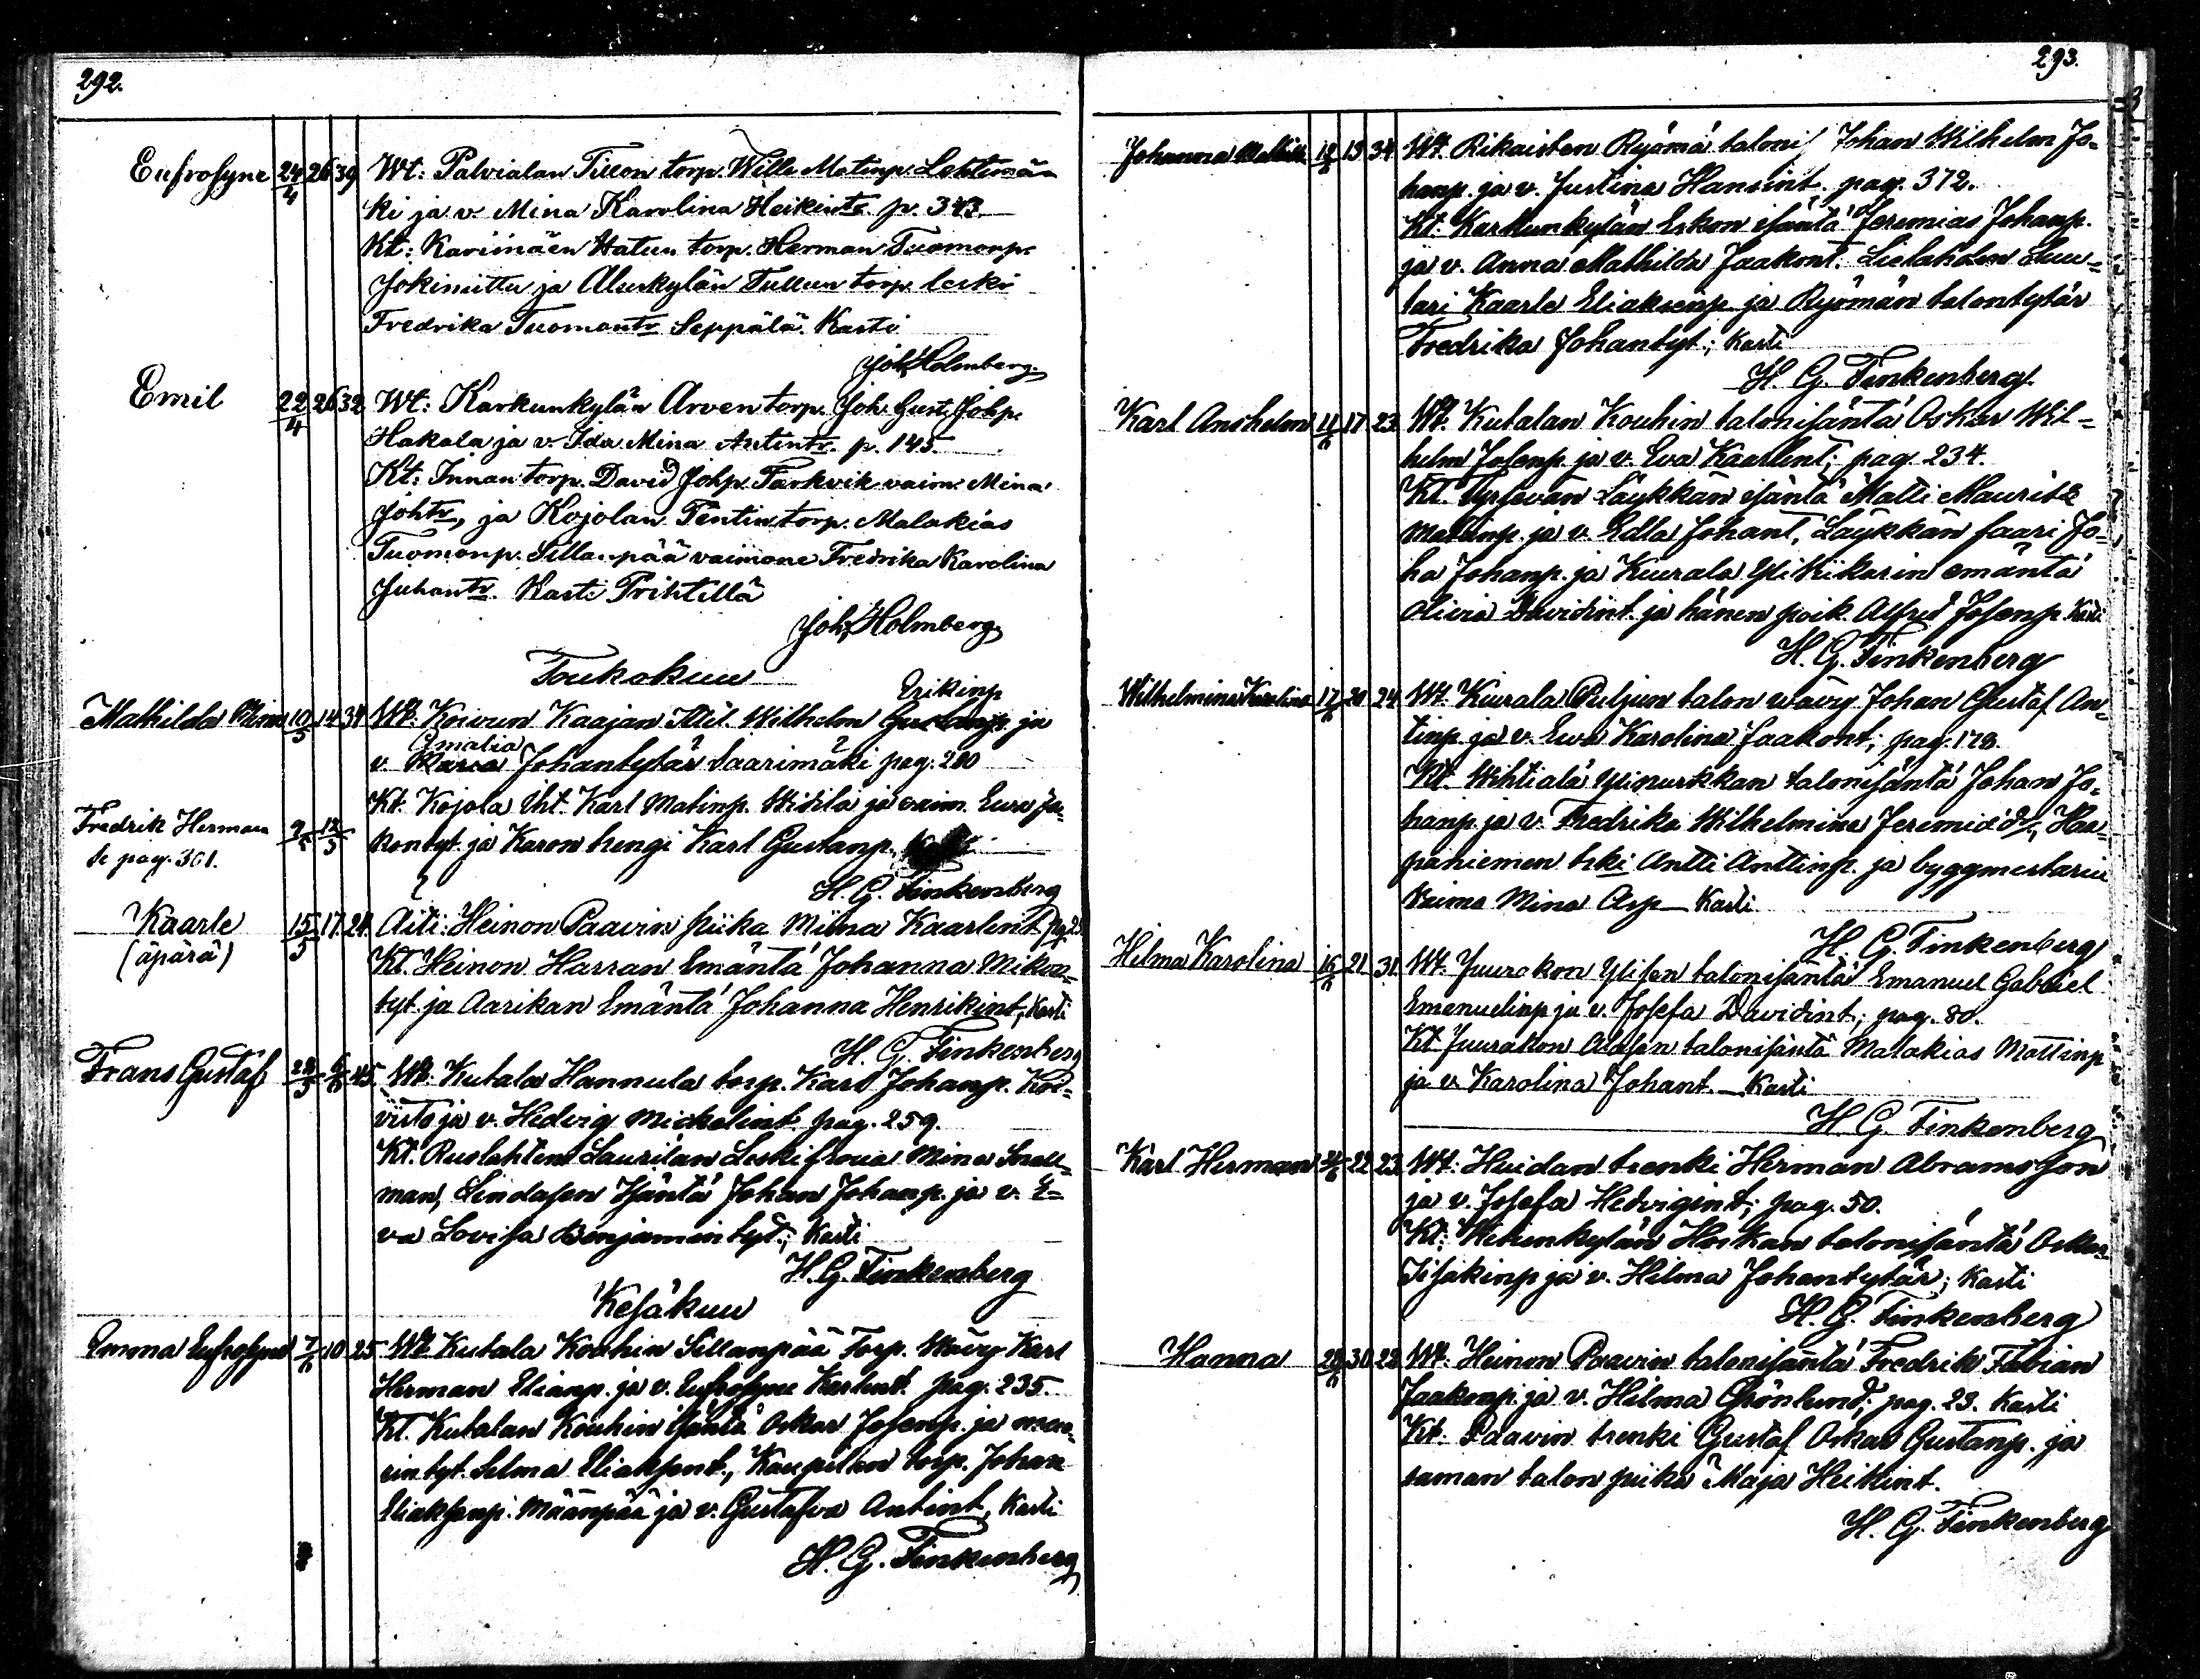 292.
Eufrosyne 24/4 26 39 Wt: Palvialan Tillon torp. Wille Matinp. Lehtimä-
ki ja v. Mina Karolina Heikintr. p. 343.
Kt: Kariniäen Hatun torp. Herman Tuomonp.
Jokiniittu ja Aluskylän Tullun torp. leski
Fredrika Tuomontr Seppälä. Kasti
Joh Holmberg.
Emil 22/4 26 32 Wt: Karkunkylän Arven torp. Joh. Gust. Johp.
Hakala ja v. Ida Mina Antintr. p. 145.
Kt: Innan torp. David Johp. Tarkvik vaim. Mina
Johtr, ja Kojolan Tentin torp. Malakias
Tuomonp. Sillanpää vaimone Fredrika Karolina
Juhantr. Kasti Prihtillä
Joh Holmberg.
Toukokuu
Erikinp
Mathilda 10/5 14 34 Wt. Koivun Kaajan Wilhelm ja
Amalia
v. Johantytär Saarimäki pag. 280
Kt. Kojola Iht. Karl Matinp. Widila ja vaim. Eeva Ja-
Fredrik Herman 9/5 12/5 kontyt. ja Karon rengi Karl Gustanp.
pag. 301.
H. G. Finkenberg
Kaarle 15/5 17 24 Äiti: Heinon Paavin piika Miina Kaarlent. pg 23
(äpärä) Kt. Heinon Harran Emäntä Johanna Mikon-
tyt. ja Aarikan Emäntä Johanna Henrikint; Kasti
H. G. Finkenberg
Frans Gustaf 28/5 6/6 45 Wt. Kutala Hannula torp. Karl Johanp. Koi-
visto ja v. Hedvig Mickelint. pag. 259.
Kt. Ruolahten Laurilan Leskifroua Mina Snell-
man, Lindasen Isäntä Johan Johanp. ja v. E-
va Lovisa Benjamintyt; Kasti
H. G. Finkenberg
Kesäkuu
Emma Eufrosyne 7/6 10 25 Wt Kutala Kouhin Sillanpää Torp. Wävy Karl
Herman Elianp. ja v. Eufrosyne Karlint. pag. 235.
Kt. Kutalan Kouhin isäntä Oskar Josenp. ja
tyt. Selma Eliaksent., Kaupilan torp. Johan
Eliaksenp. Määnpää ja v. Gustafva Antint, Kasti
H. G. Finkenberg
293.
Johanna 12/6 13 34 Wt. Rikaisten Ryömä taloni/ Johan Wilhelm Jo-
hanp. ja v. Justina Hansint. pag. 372.
Kt. Karkunkylän Erkon isäntä Jeremias Johanp.
ja v. Anna Mathilda Jaakont. Lielahden Suu-
tari Kaarle Eliaksenp ja Ryömän talontytär
Fredrika Johantyt; Kasti
H. G. Finkenberg.
Karl Anshelm 11/6 17 23 Wt. Kutalan Kouhin talonisäntä Oskar Wil-
helm Josenp. ja v. Eva Kaarlent; pag. 234.
Kt. Tyrfwän Läykkän isäntä Matti Maurits
Mattinp. ja v. Edla Johant, Läykkän faari Jo-
ha Johanp. ja Kiurala Yli Kiikarin emäntä
Olivia Davidint. ja hänen poik. Alfred Josenp Kasti
H. G. Finkenberg
Wilhelmina Karolina 17/6 20 24 Wt. Kiurala Puljun talon wävy Johan Gustaf An-
tinp. ja v. Ewa Karolina Jaakont; pag. 178.
Kt. Wihtiälä Ylinurkkan talonisäntä Johan Jo-
hanp. ja v. Fredrika Wilhelmina Jeremiæ d/r, Haa-
paniemen trki Antti Anttinp. ja byggmestarin
Vaimo Mina Asp — Kasti
H. G. Finkenberg
Hilma Karolina 16/6 21 31 Wt. Juurakon Ylisen talonisäntä Emanuel Gabriel
Emenuelinp ja v. Josefa Davidint; pag. 80.
Kt Juurakon Alasen talonisäntä Malakias Mattinp
ja v. Karolina Johant. — Kasti
H. G. Finkenberg
Karl Herman 21/6 22 23 Wt. Huidan trenki Herman Abramsson
ja v. Josefa Hedvigint; pag. 50.
Kt: Wihinkylän Horkan talonisäntä Oskar
Iisakinp ja v. Hilma Johantytär; Kasti
H. G. Finkenberg
Hanna 28/6 30 28 Wt. Heinon Paavin talonisäntä Fredrik Fabian
Jaakonp. ja v. Hilma Grönlund; pag. 23. Kasti
Kt. Paavin trenki Gustaf Oskar Gustanp. ja
saman talon piika Maja Heikint.
H. G. Finkenberg